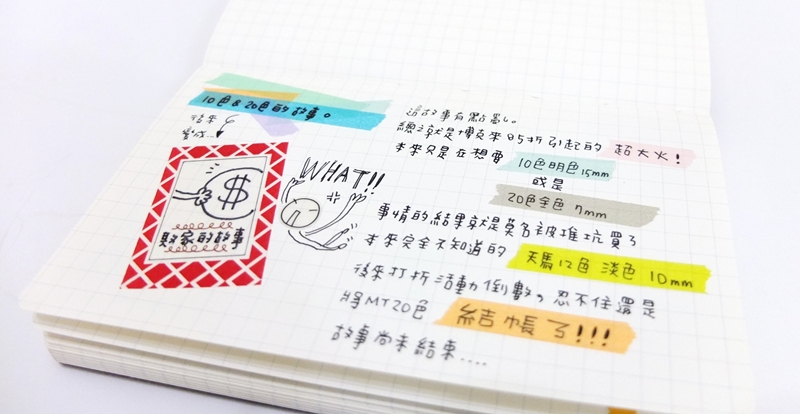 10色&20色的故事。
後來
變成...
$
敗家的故事
WHAT!!
這故事有點亂。
總之就是博克來85折引起的 超大火!
本來只是在想要 10色明色15mm
或是
20色全色 7mm
事情的結果就是莫名被推坑買了
本來完全不知道的 天馬12色 淡色 10mm
後來打折活動倒數, 忍不住還是
將MT20色 結帳了!!!
故事尚未結束....